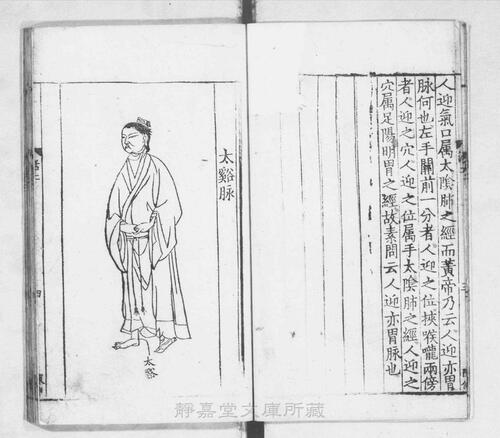 人迎氣口属太陰肺之經而黃帝乃云人迎亦胃
脉何也左手關前一分者人迎之位挾喉嚨兩傍
者人迎之穴人迎之位属手太陰肺之經人迎之
穴属足陽明胃之經故素問云人迎亦胃脉也
太谿脉
太谿
四
靜嘉堂文庫所藏